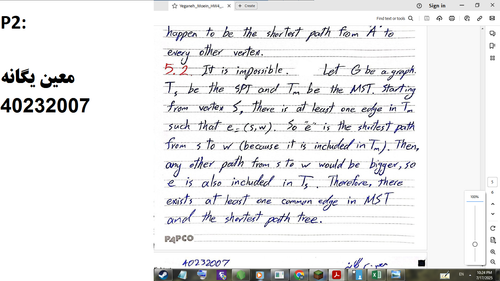 P2:
معین یگانه
40232007
Yeganeh_Moein_HW4_...
+ Create
Sign in
Find text or tools
happen to be the shortest path from A to
every other vertex.
5.2 It is impossible. Let G be a graph.
Ts be the SPT and Tm be the MST. Starting
from vertex S, there is at least one edge in Tm
such that e = (s,w). So "e" is the shortest path
from s to w (because it is included in Tm). Then,
any other path from s to w would be bigger, so
e is also included in Ts. Therefore, there
exists at least one common edge in MST
and the shortest path tree.
PAPCO
40232007
100%
EN
10:24 PM
7/11/2025